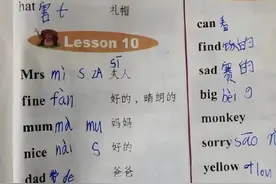 hat 害 t 礼帽
Lesson 10
Mrs mì s zA 夫人
fine fàn 好的，晴朗的
mum mā mu 妈妈
nice nài s 好的
dad de 爸爸
can 看
find 的
sad 赛的
big bèi g
monkey
sorry sāo
yellow